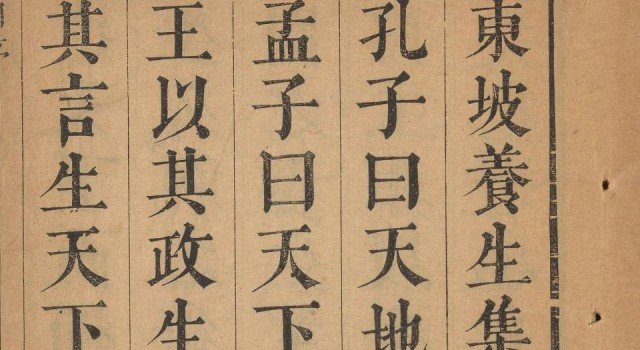 東坡養生集
孔子曰天地
孟子曰天下
王以其政生
其言生天下